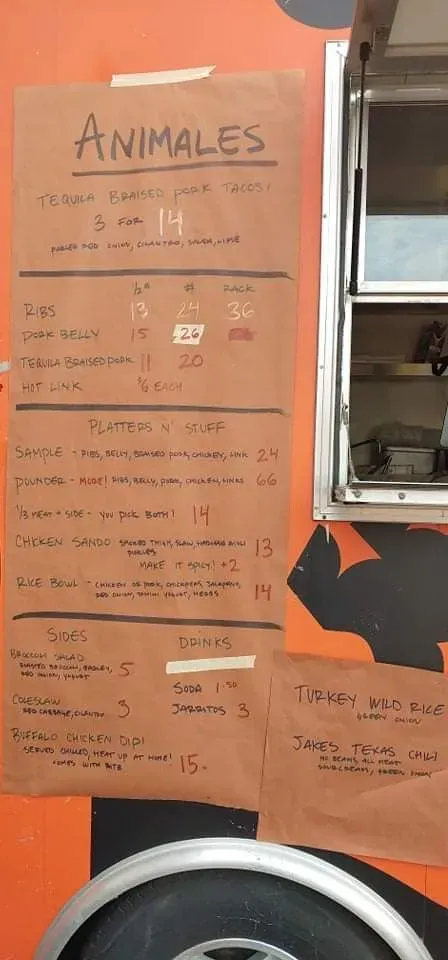 ANIMALES
TEQUILA BRAISED PORK TACOS!
3 FOR 14
PICKLED RED ONION, CILANTRO, SALSA, LIME
½# # RACK
RIBS 13 24 36
PORK BELLY 15 26
TEQUILA BRAISED PORK 11 20
HOT LINK $6 EACH
PLATTERS N' STUFF
SAMPLE - RIBS, BELLY, BRAISED PORK, CHICKEN, LINK 24
POUNDER - MORE! RIBS, BELLY, PORK, CHICKEN, LINKS 66
⅓ MEAT + SIDE - YOU PICK BOTH! 14
CHICKEN SANDO SMOKED THIGH, SLAW, 13
PICKLES
MAKE IT SPICY! +2
RICE BOWL - CHICKEN OR PORK, CHICKPEAS, JALAPENO, 14
RED ONION, TAHINI YOGURT, HERBS
SIDES
BROCCOLI SALAD
ROASTED BROCCOLI, BARLEY, 5
RED ONION, YOGURT
COLESLAW 3
RED CABBAGE, CILANTRO
BUFFALO CHICKEN DIP!
SERVED CHILLED, HEAT UP AT HOME! 15.-
COMES WITH
DRINKS
SODA 1.50
JARRITOS 3
TURKEY WILD RICE
GREEN ONION
JAKES TEXAS CHILI
NO BEANS, ALL MEAT
SOUR CREAM, GREEN ONION